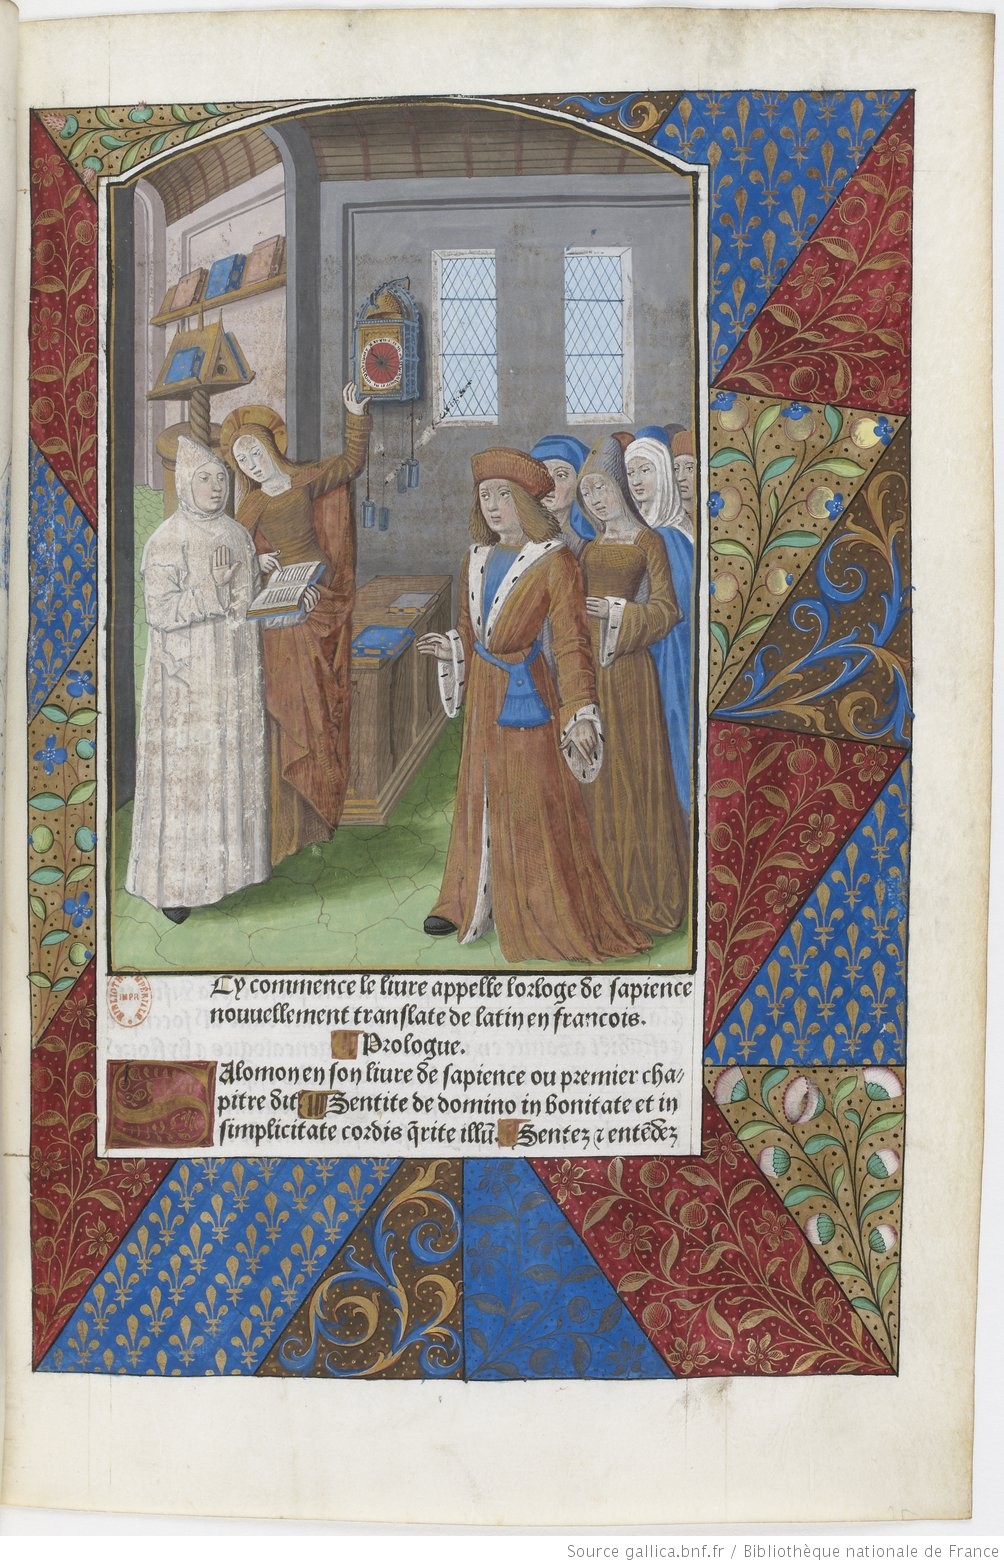 Cy commence le livre appelle lorloge de sapience
nouuellement translate de latin en francois.
Prologue.
Salomon en son livre de sapience ou premier cha/
pitre dit Sentite de domino in bonitate et in
simplicitate cordis q̄rite illū. Sentez ⁊ entēdez
BIBLIOTH. IMPÉRIALE
IMPR
Source gallica.bnf.fr / Bibliothèque nationale de France